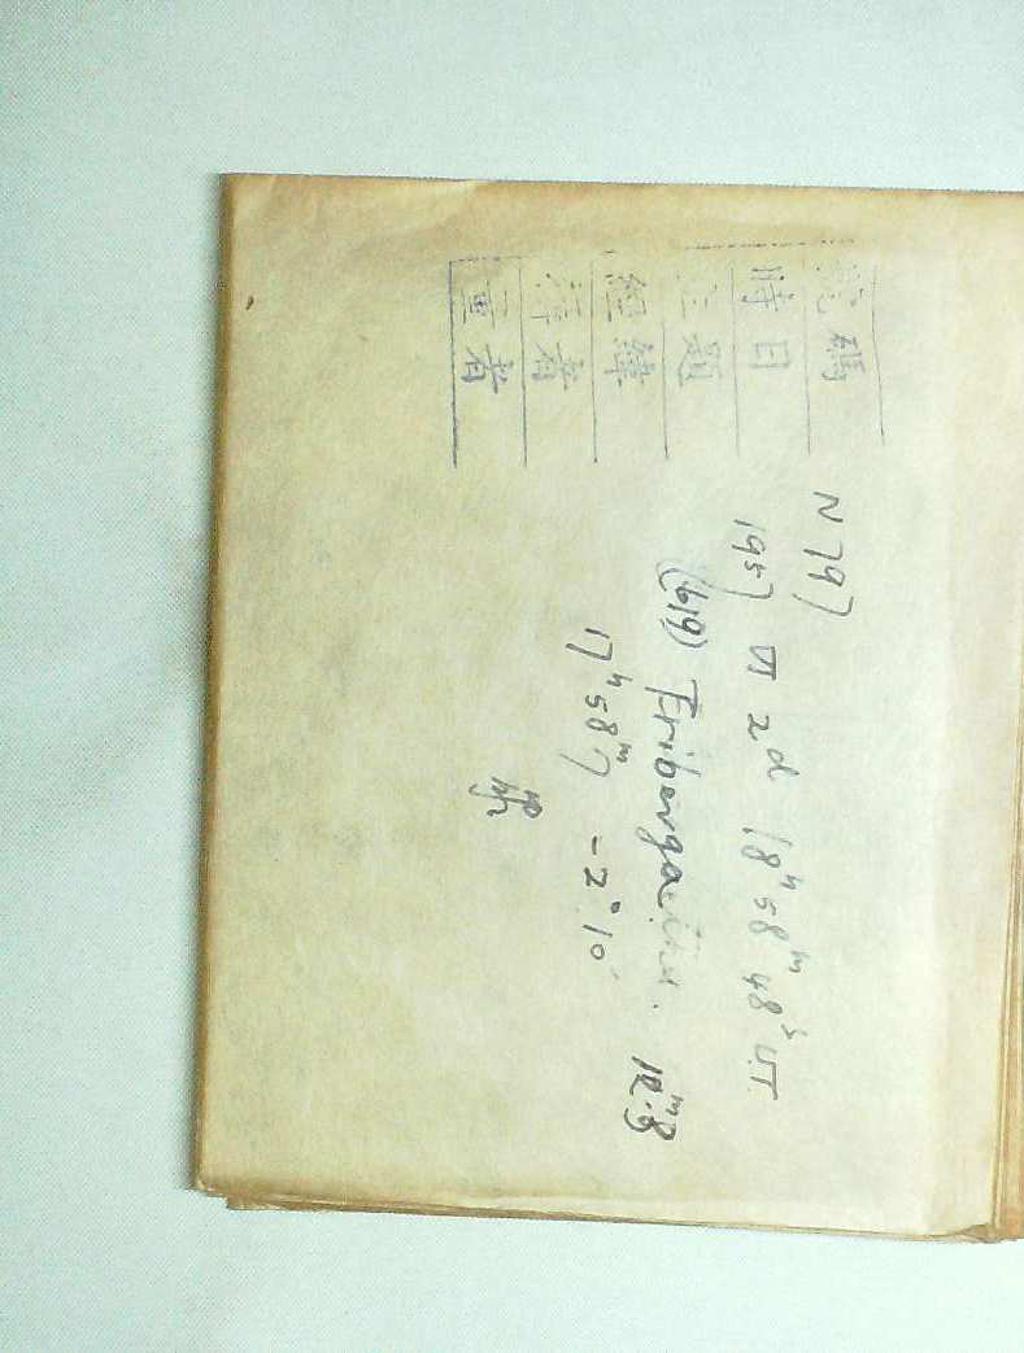 號碼 N 797
時日 1957 VI 2d 18h 58m 48s UT
題 (619) Triberga 12.m8
經緯 17h 58m7 -2°10′
者
者